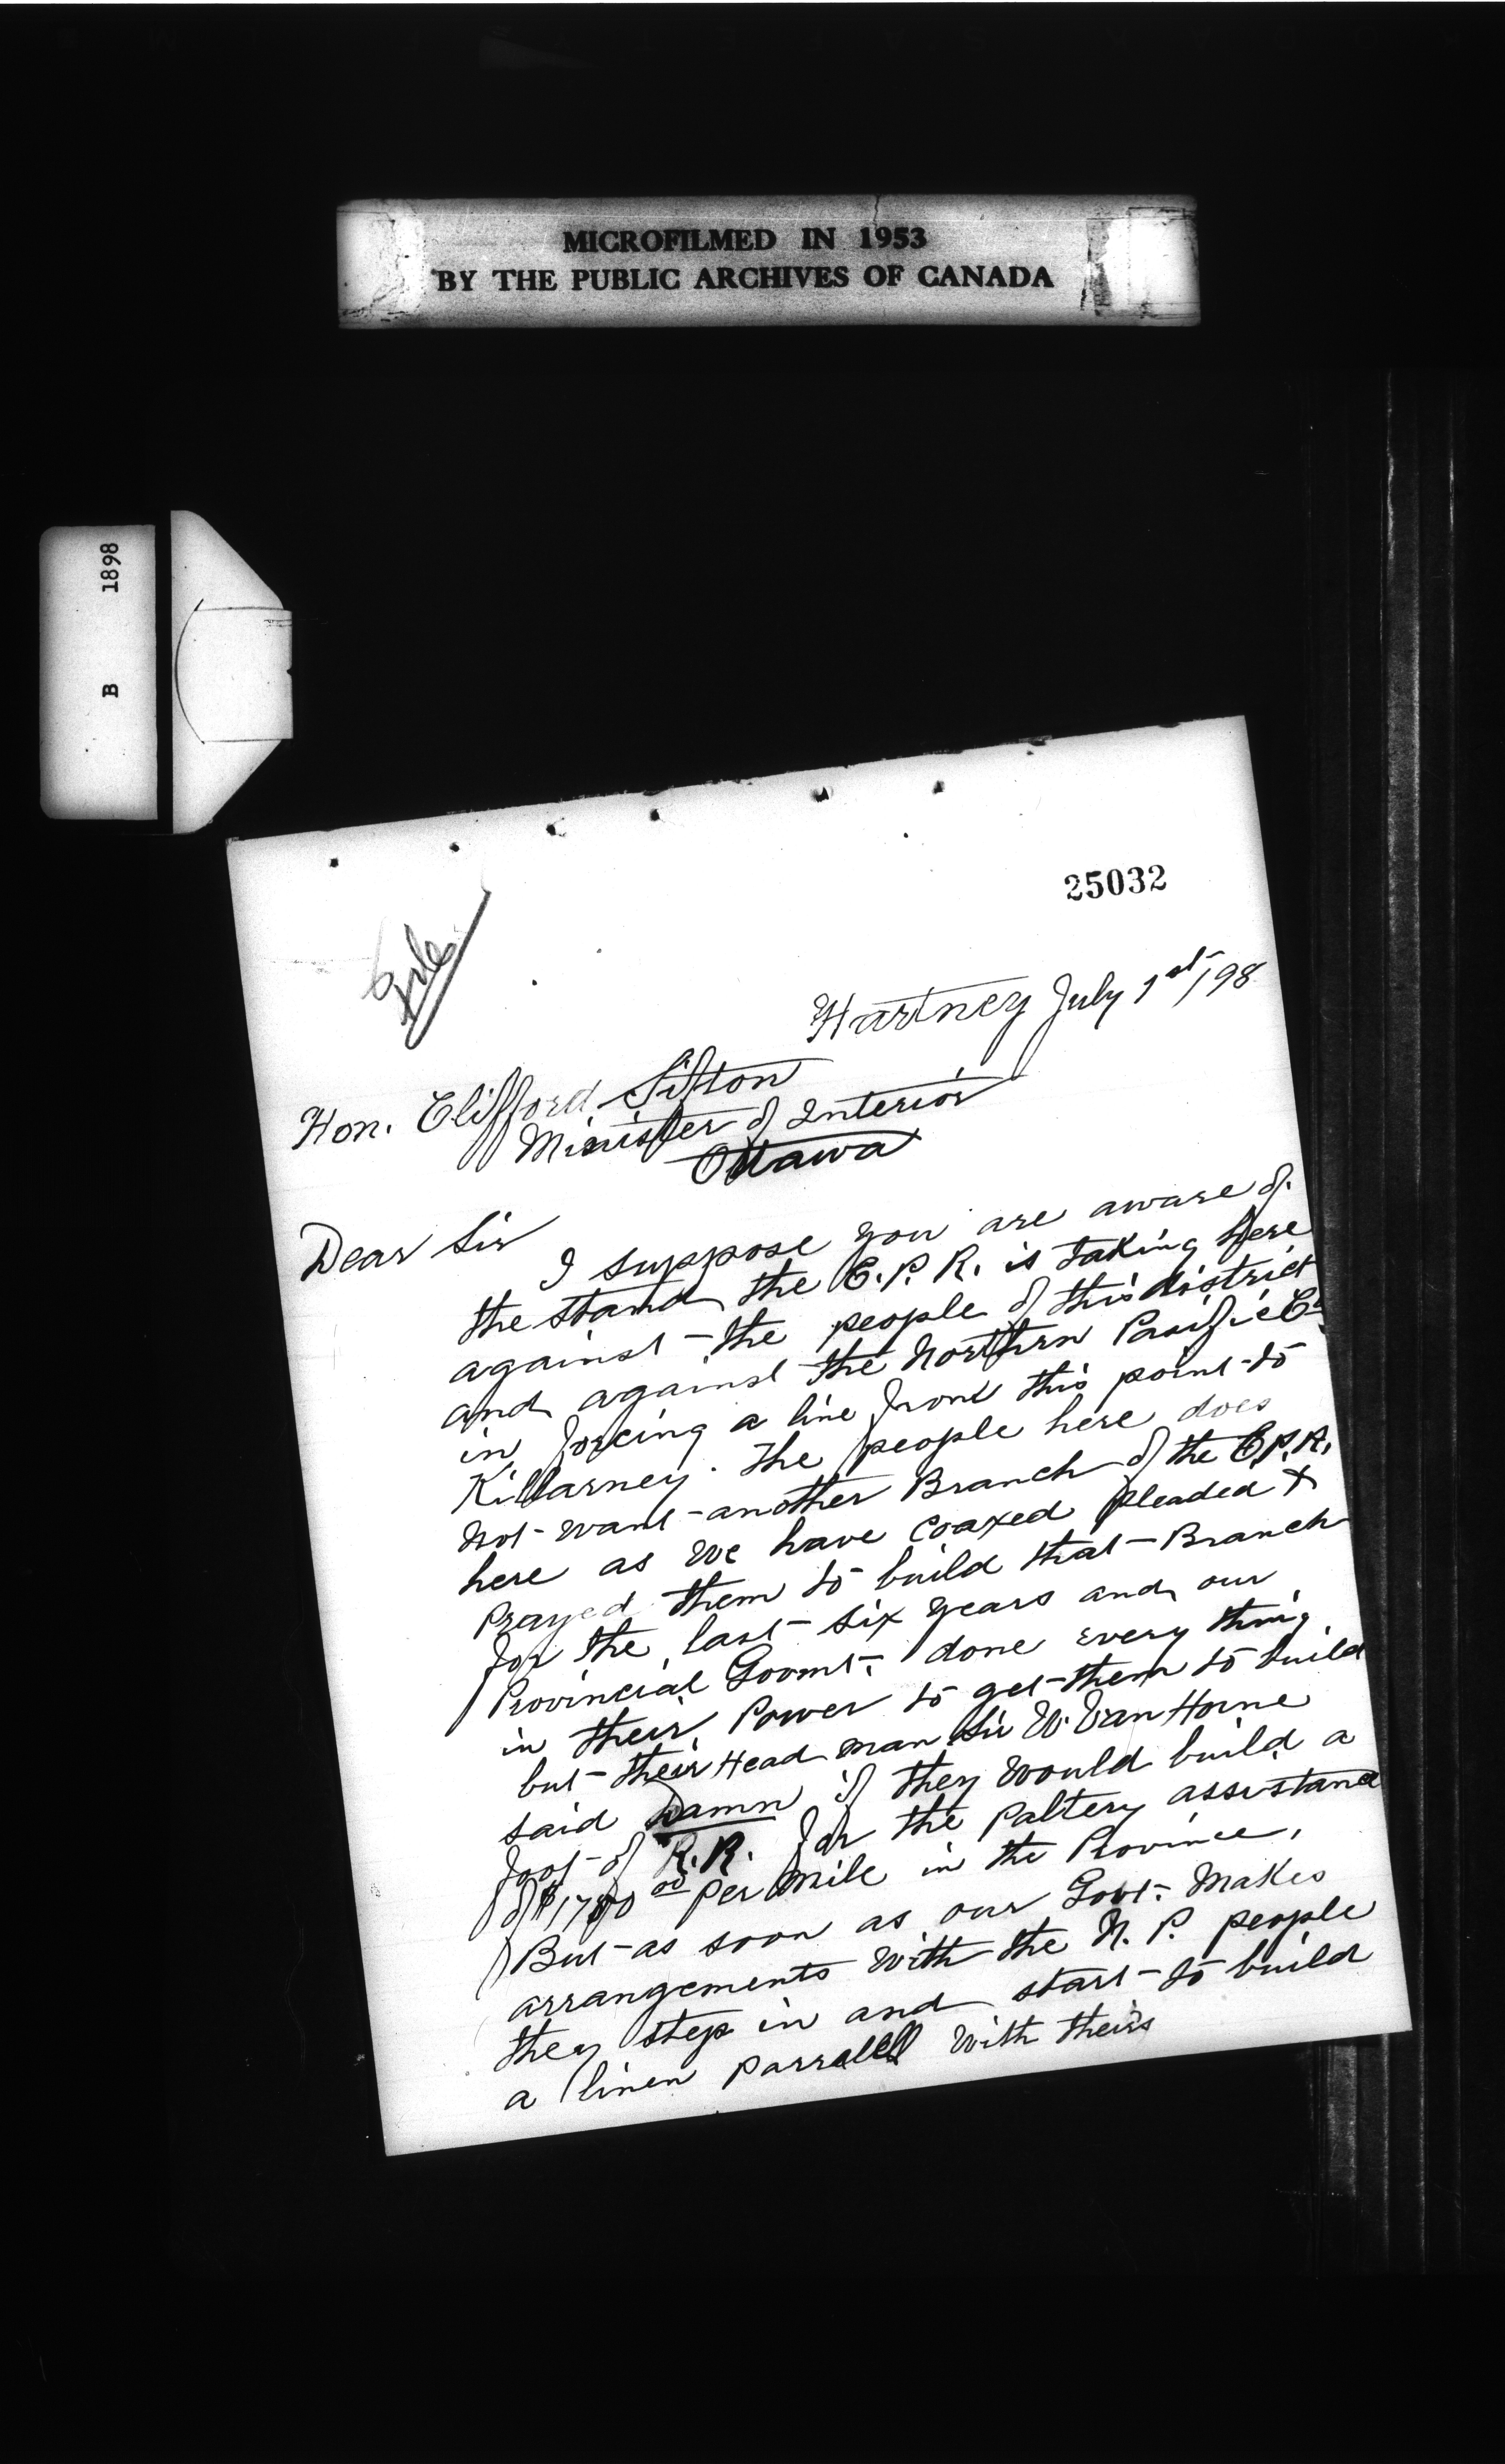 MICROFILMED IN 1953
BY THE PUBLIC ARCHIVES OF CANADA
B 1898
25032
File
Hartney July 1st/98
Hon. Clifford Sifton
Minister of Interior
Ottawa
Dear Sir
I suppose you are aware of
the stand the C.P.R. is taking here
against the people of this district
and against the Northern Pacific Co.
in forcing a line from this point to
Killarney. The people here does
not want another Branch of the C.P.R.
here as we have coaxed pleaded &
Prayed them to build that Branch
for the last six years and our
Provincial Govmt. done every thing
in their Power to get them to build
but their Head man Sir W. Van Horne
said Damn if they would build a
foot of R.R. for the Paltery assistance
of $1750 00 per mile in the Province,
But as soon as our Govt. Makes
arrangements with the N. P. people
they step in and start to build
a linen Parralell with theirs